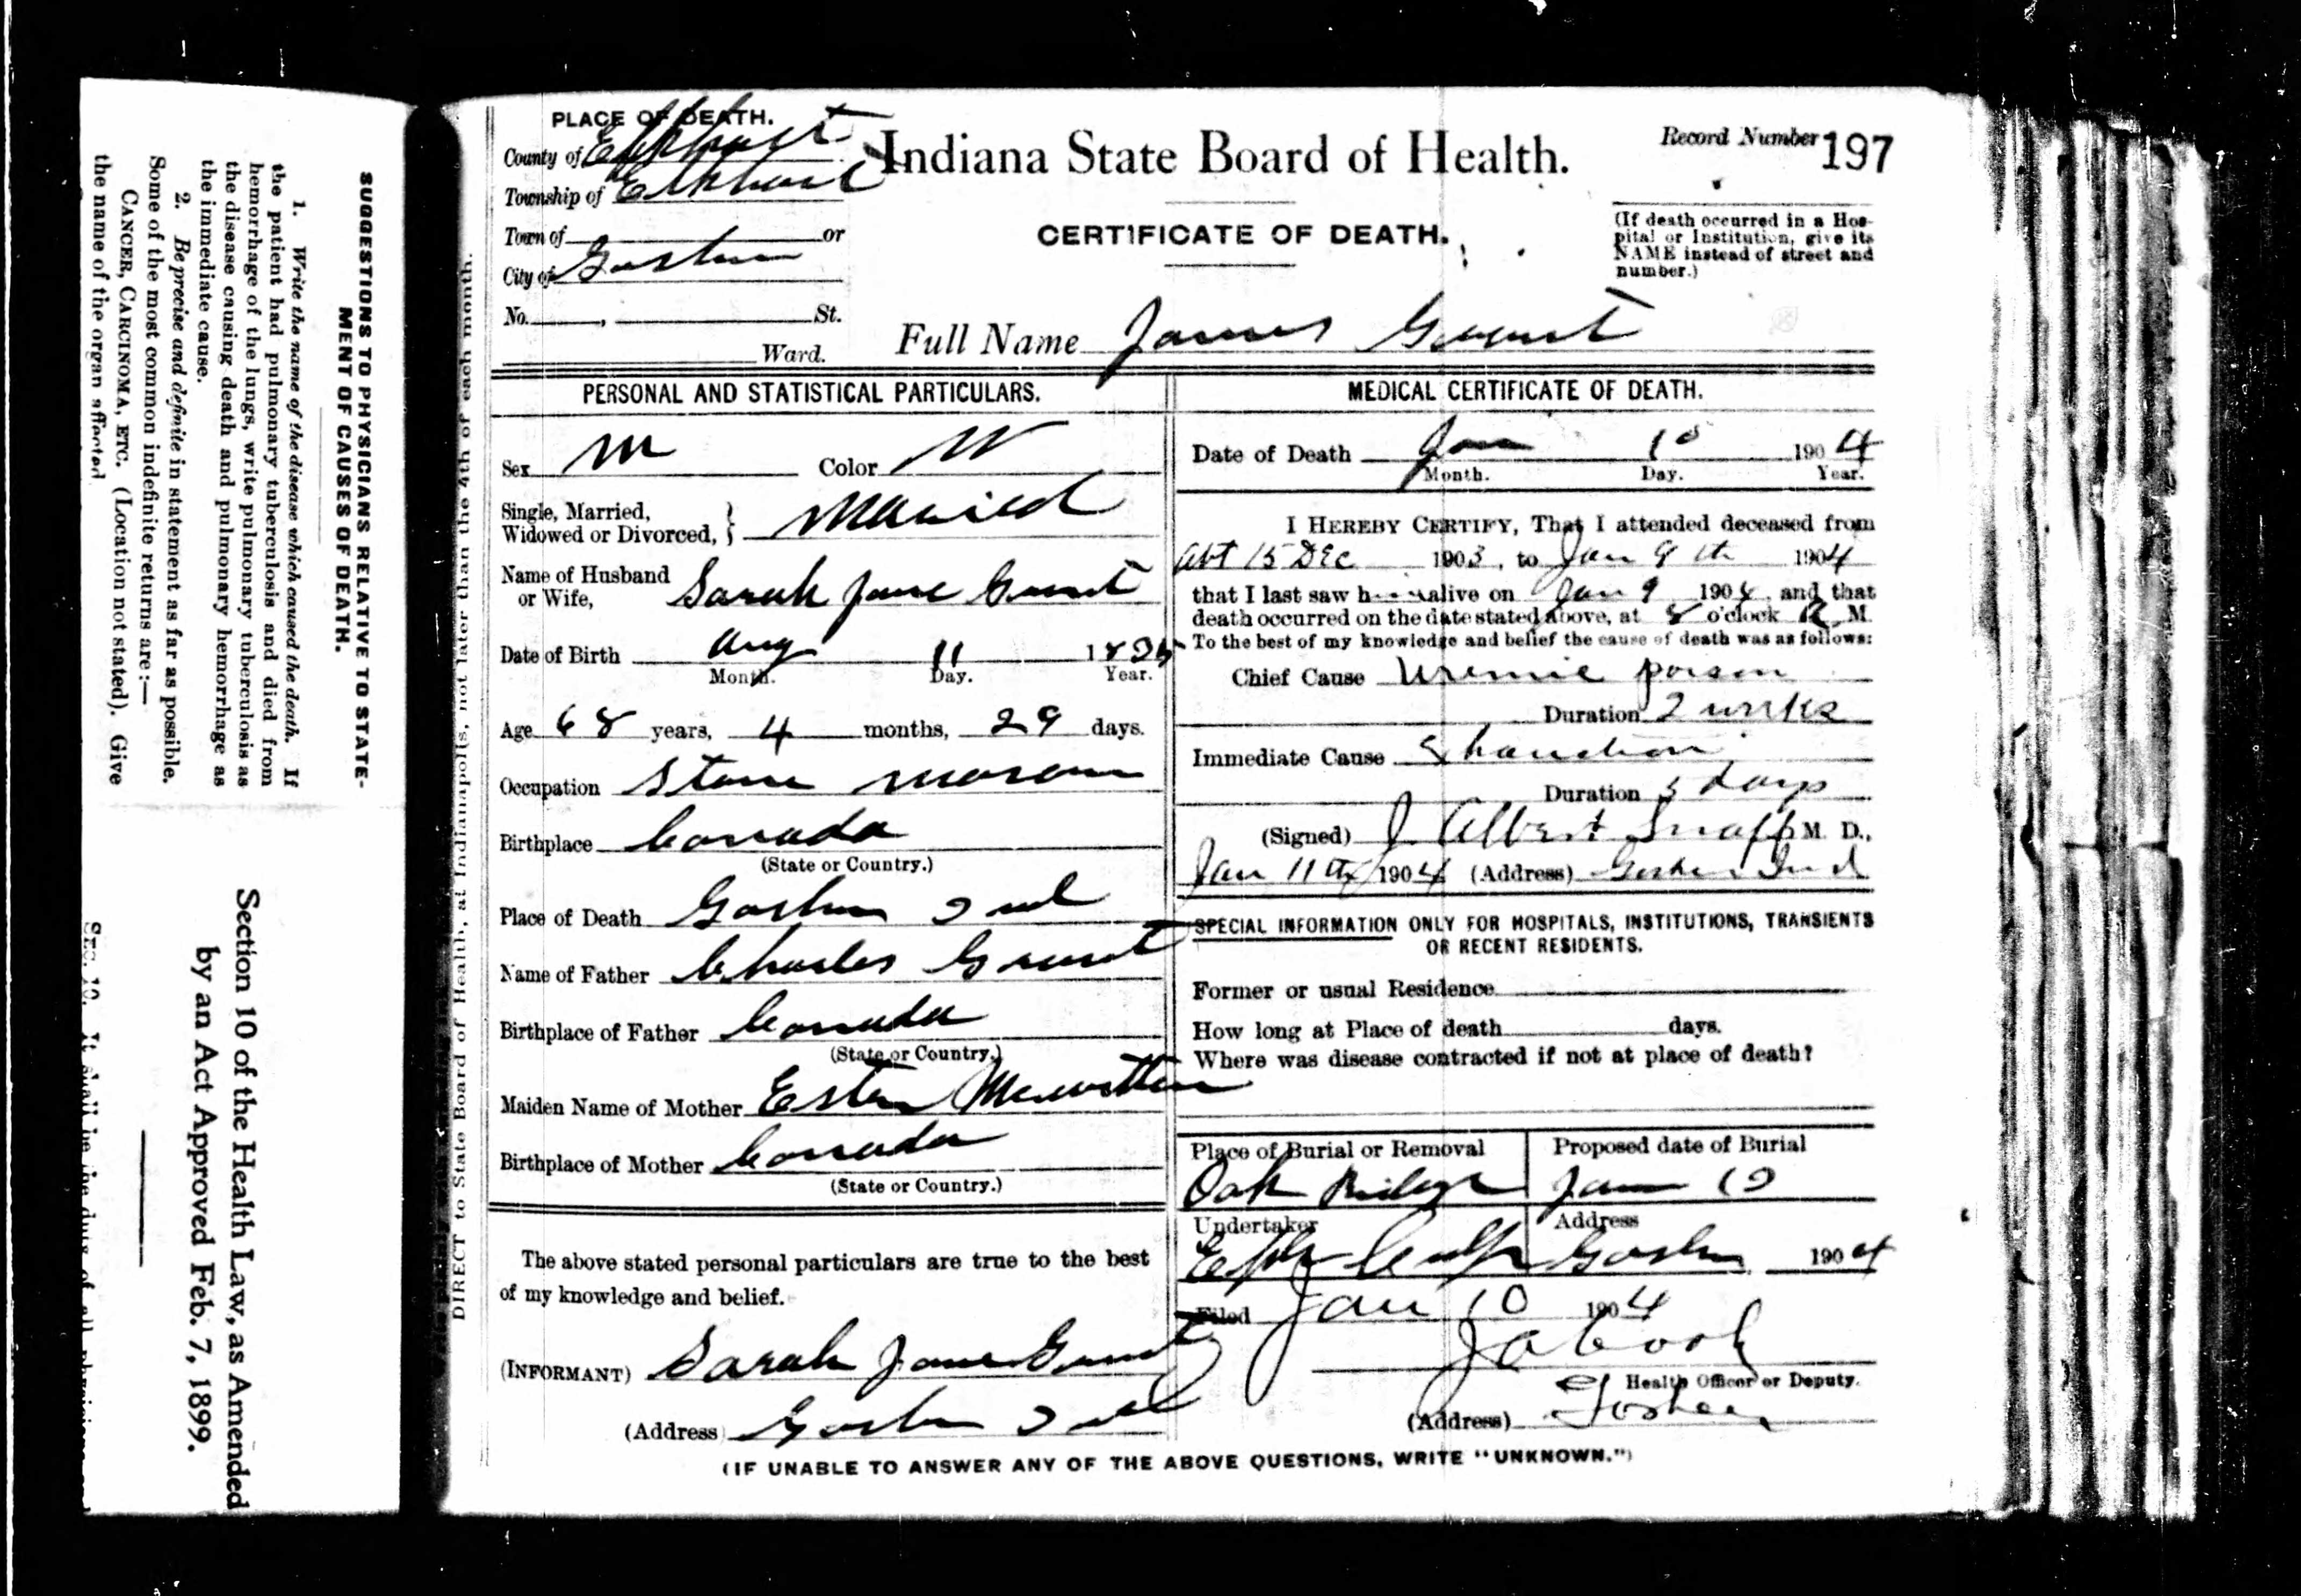 SUGGESTIONS TO PHYSICIANS RELATIVE TO STATE-
MENT OF CAUSES OF DEATH.
1. Write the name of the disease which caused the death. If
the patient had pulmonary tuberculosis and died from
hemorrhage of the lungs, write pulmonary tuberculosis as
the disease causing death and pulmonary hemorrhage as
the immediate cause.
2. Be precise and definite in statement as far as possible.
Some of the most common indefinite returns are:—
CANCER, CARCINOMA, ETC. (Location not stated). Give
the name of the organ affected
Section 10 of the Health Law, as Amended
by an Act Approved Feb. 7, 1899.
SEC. 10. It shall be the duty of all physicians
DIRECT to State Board of Health, at Indianapolis, not later than the 4th of each month.
PLACE OF DEATH.
County of Elkhart
Township of Elkhart
Town of or
City of Goshen
No. , St.
Ward.
Indiana State Board of Health.
CERTIFICATE OF DEATH.
Record Number 197
(If death occurred in a Hos-
pital or Institution, give its
NAME instead of street and
number.)
Full Name James
PERSONAL AND STATISTICAL PARTICULARS.
Sex M Color W
Single, Married,
Widowed or Divorced, } Married
Name of Husband
or Wife, Sarah Jane
Date of Birth Aug 11 1835
Month. Day. Year.
Age 68 years, 4 months, 29 days.
Occupation Stone mason
Birthplace Canada
(State or Country.)
Place of Death Goshen Ind
Name of Father Charles
Birthplace of Father Canada
(State or Country.)
Maiden Name of Mother Ester
Birthplace of Mother Canada
(State or Country.)
The above stated personal particulars are true to the best
of my knowledge and belief.
(INFORMANT) Sarah Jane
(Address) Goshen Ind
MEDICAL CERTIFICATE OF DEATH.
Date of Death Jan 10 1904
Month. Day. Year.
I HEREBY CERTIFY, That I attended deceased from
abt 15 Dec 1903, to Jan 9th 1904
that I last saw h alive on Jan 9 1904, and that
death occurred on the date stated above, at 8 o'clock M.
To the best of my knowledge and belief the cause of death was as follows:
Chief Cause Uremic poison
Duration 2 weeks
Immediate Cause Exhaustion
Duration 3 days
(Signed) J Albert Snapp M. D.,
Jan 11th 1904 (Address) Goshen Ind
SPECIAL INFORMATION ONLY FOR HOSPITALS, INSTITUTIONS, TRANSIENTS
OR RECENT RESIDENTS.
Former or usual Residence
How long at Place of death days.
Where was disease contracted if not at place of death?
Place of Burial or Removal Proposed date of Burial
Oak Ridge Jan
Undertaker Address
Culp Goshen 1904
Filed Jan 10 1904
J A Cook
Health Officer or Deputy.
(Address) Goshen
(IF UNABLE TO ANSWER ANY OF THE ABOVE QUESTIONS, WRITE "UNKNOWN.")